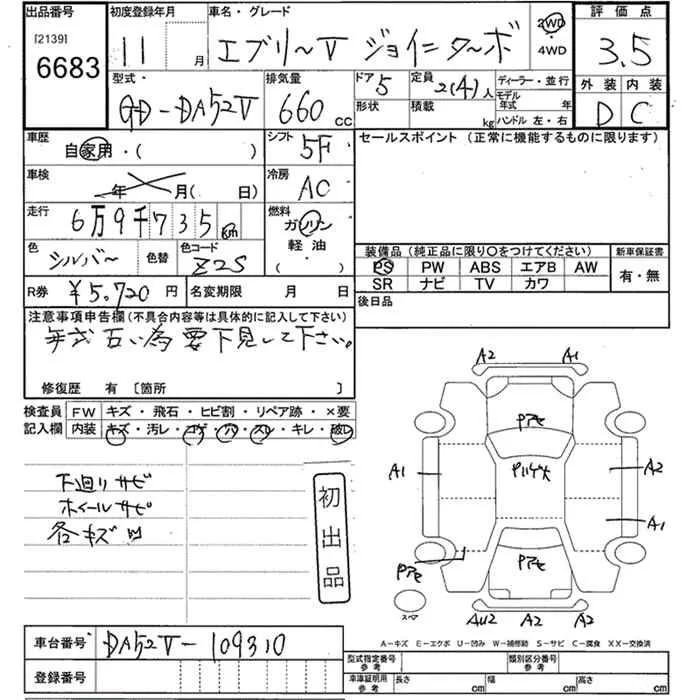 出品番号 初度登録年月 車名・グレード 2WD ・4WD 評価点
[2139] 6683 11 月 エブリーV ジョイニターボ 3.5
型式・ 排気量 ドア 定員 ディーラー・並行 外装 内装
GD-DA52V 660 CC 5 2(4)人 モデル年式 年 D C
形状 積載 kg ハンドル 左・右
車歴 自家用・( ) シフト 5F セールスポイント (正常に機能するものに限ります)
車検 年 月( 日) 冷房 AC
走行 6万9千735 km 燃料 ガソリン
軽油・
( )
色 シルバー 色替 色コード Z2S
装備品 (純正品に限り○をつけてください) 新車保証書
PS PW ABS エアB AW 有・無
SR ナビ TV カワ
R券 ¥5,720 円 名変期限 月 日 後日品
注意事項申告欄(不具合内容等は具体的に記入して下さい)
年式古い為要下見して下さい。
修復歴 有 〔箇所 〕
検査員 FW キズ・飛石・ヒビ割・リペア跡・×要
記入欄 内装 キズ・汚レ・コゲ・穴・スレ・キレ・破レ
下廻りサビ
ホイールサビ
各キズ凹
初出品
A2 A1
Pアセ
A1 Pハゲ大 A2
A1
Pアセ Pアセ
スペア AU2 A2 A2
A-キズ E-エクボ U-凹み W-補修跡 S-サビ C-腐食 XX-交換済
車台番号 DA52V-109310
型式指定番号 参考 類別区分番号 参考
登録番号 車庫証明用 参考 長さ cm 幅 cm 高さ cm